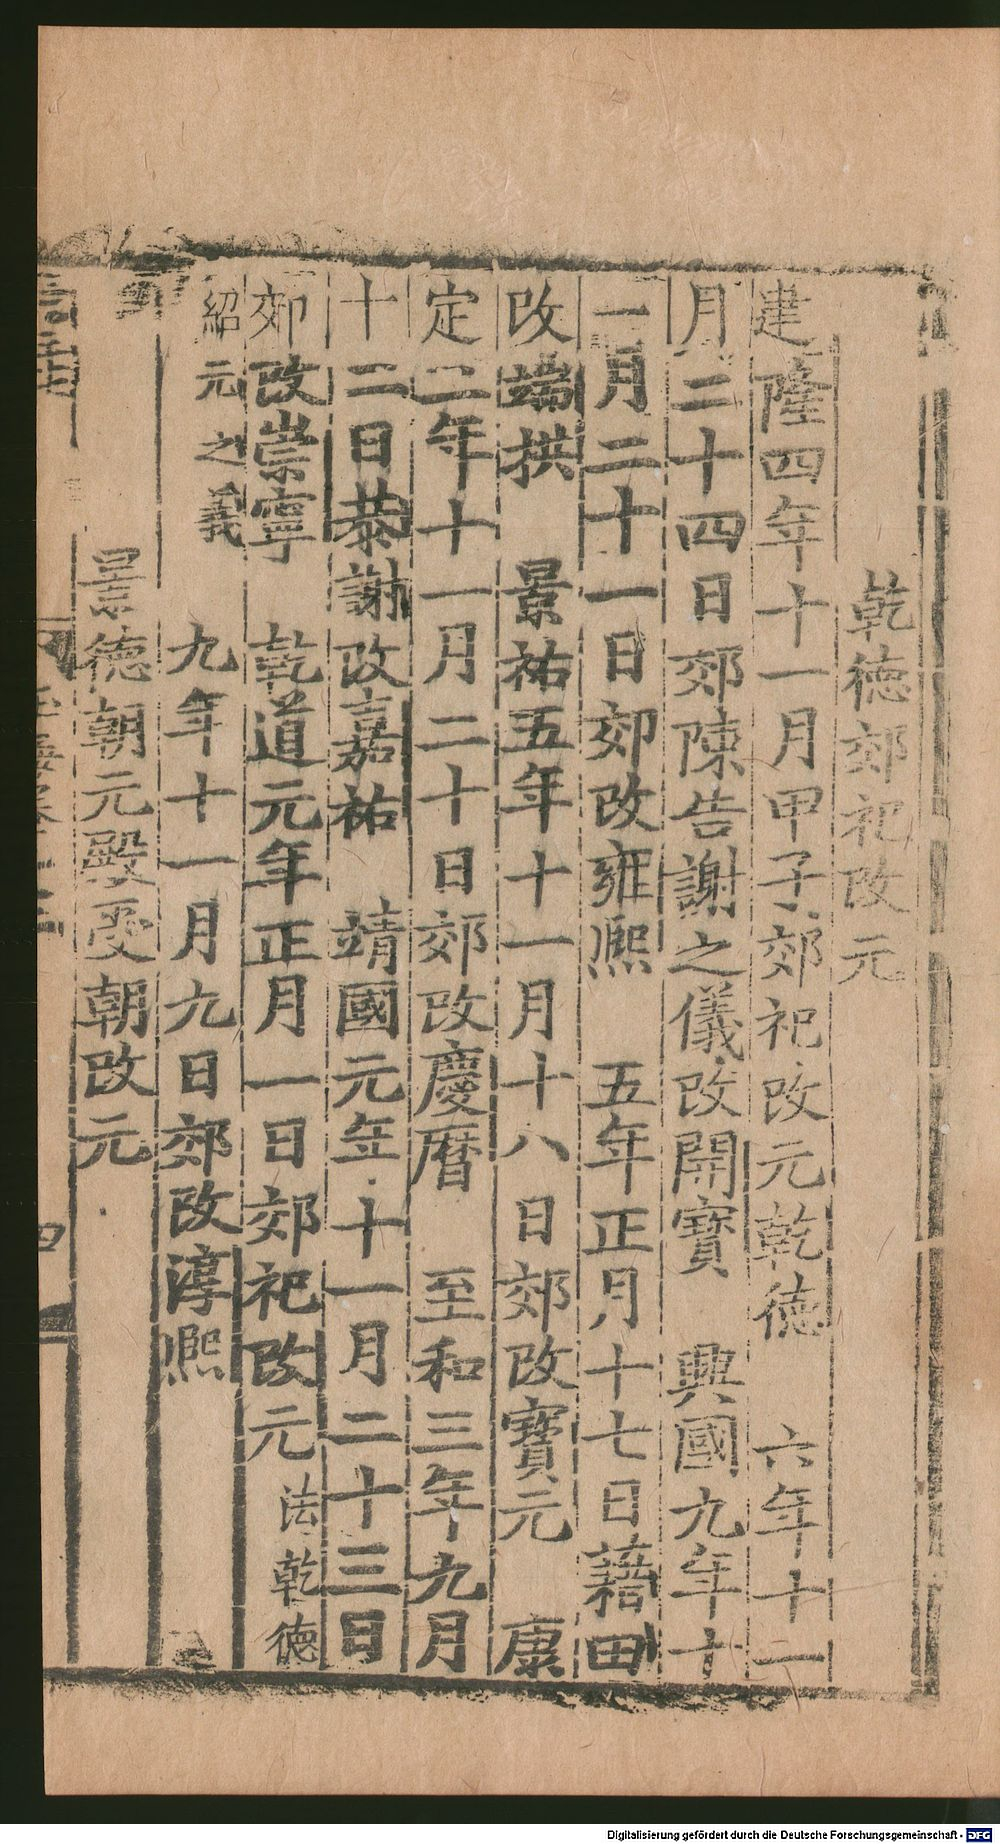 乾德郊祀改元
建隆四年十一月甲子郊祀改元乾德　六年十一
月二十四日郊陳告謝之儀改開寶　興國九年十
一月二十一日郊改雍熙　五年正月十七日藉田
改端拱　景祐五年十一月十八日郊改寶元　康
定二年十一月二十日郊改慶曆　至和三年九月
十二日恭謝改嘉祐　靖國元年十一月二十三日
郊改崇寧　乾道元年正月一日郊祀改元法乾德
紹元之義　九年十一月九日郊改淳熙
景德朝元殿受朝改元
四
Digitalisierung gefördert durch die Deutsche Forschungsgemeinschaft - DFG